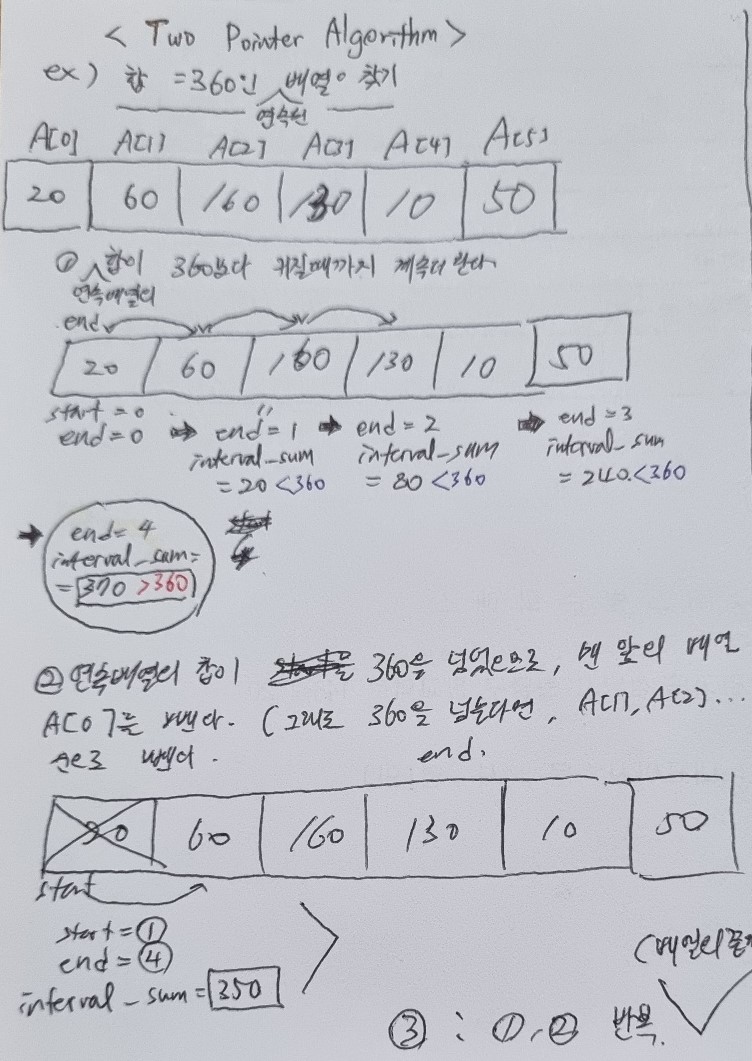 < Two Pointer Algorithm >
ex) 합 =360인 연속된 배열 찾기
A[0] A[1] A[2] A[3] A[4] A[5]
20 60 160 130 10 50
① 연속배열의 합이 360보다 커질때까지 계속더한다
end
20 60 160 130 10 50
start = 0
end=0 → end=1 → end=2 → end=3
interval_sum interval_sum interval_sum
=20<360 =80<360 =240.<360
→ end=4
interval_sum=
=370 >360
② 연속배열의 합이 360을 넘었으므로, 맨 앞의 배열
A[0]를 뺀다. (그래도 360을 넘는다면, A[1], A[2]...
순으로 뺀다.
end.
20 60 160 130 10 50
start
start=①
end=④
interval_sum=350
(배열의 끝
③ : ①,② 반복.